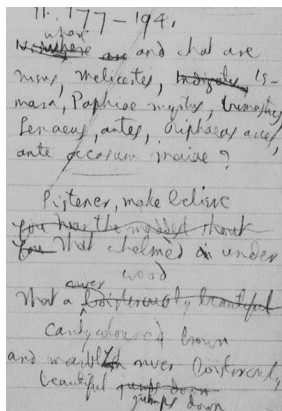 ll. 177–194.
where
Where are and what are
nisus, Melicertes, Is-
mara, Paphiae myrtus, bumastus,
Lenaeus, antes, Riphaeas arces,
ante occasum Maiae?
Listener, make believe
you hear the maddest shout
you that whelmed in under
wood
river
that a boisterously beautiful
candycoloured brown
and marbled river boisterously
beautiful gumps down
gumps down